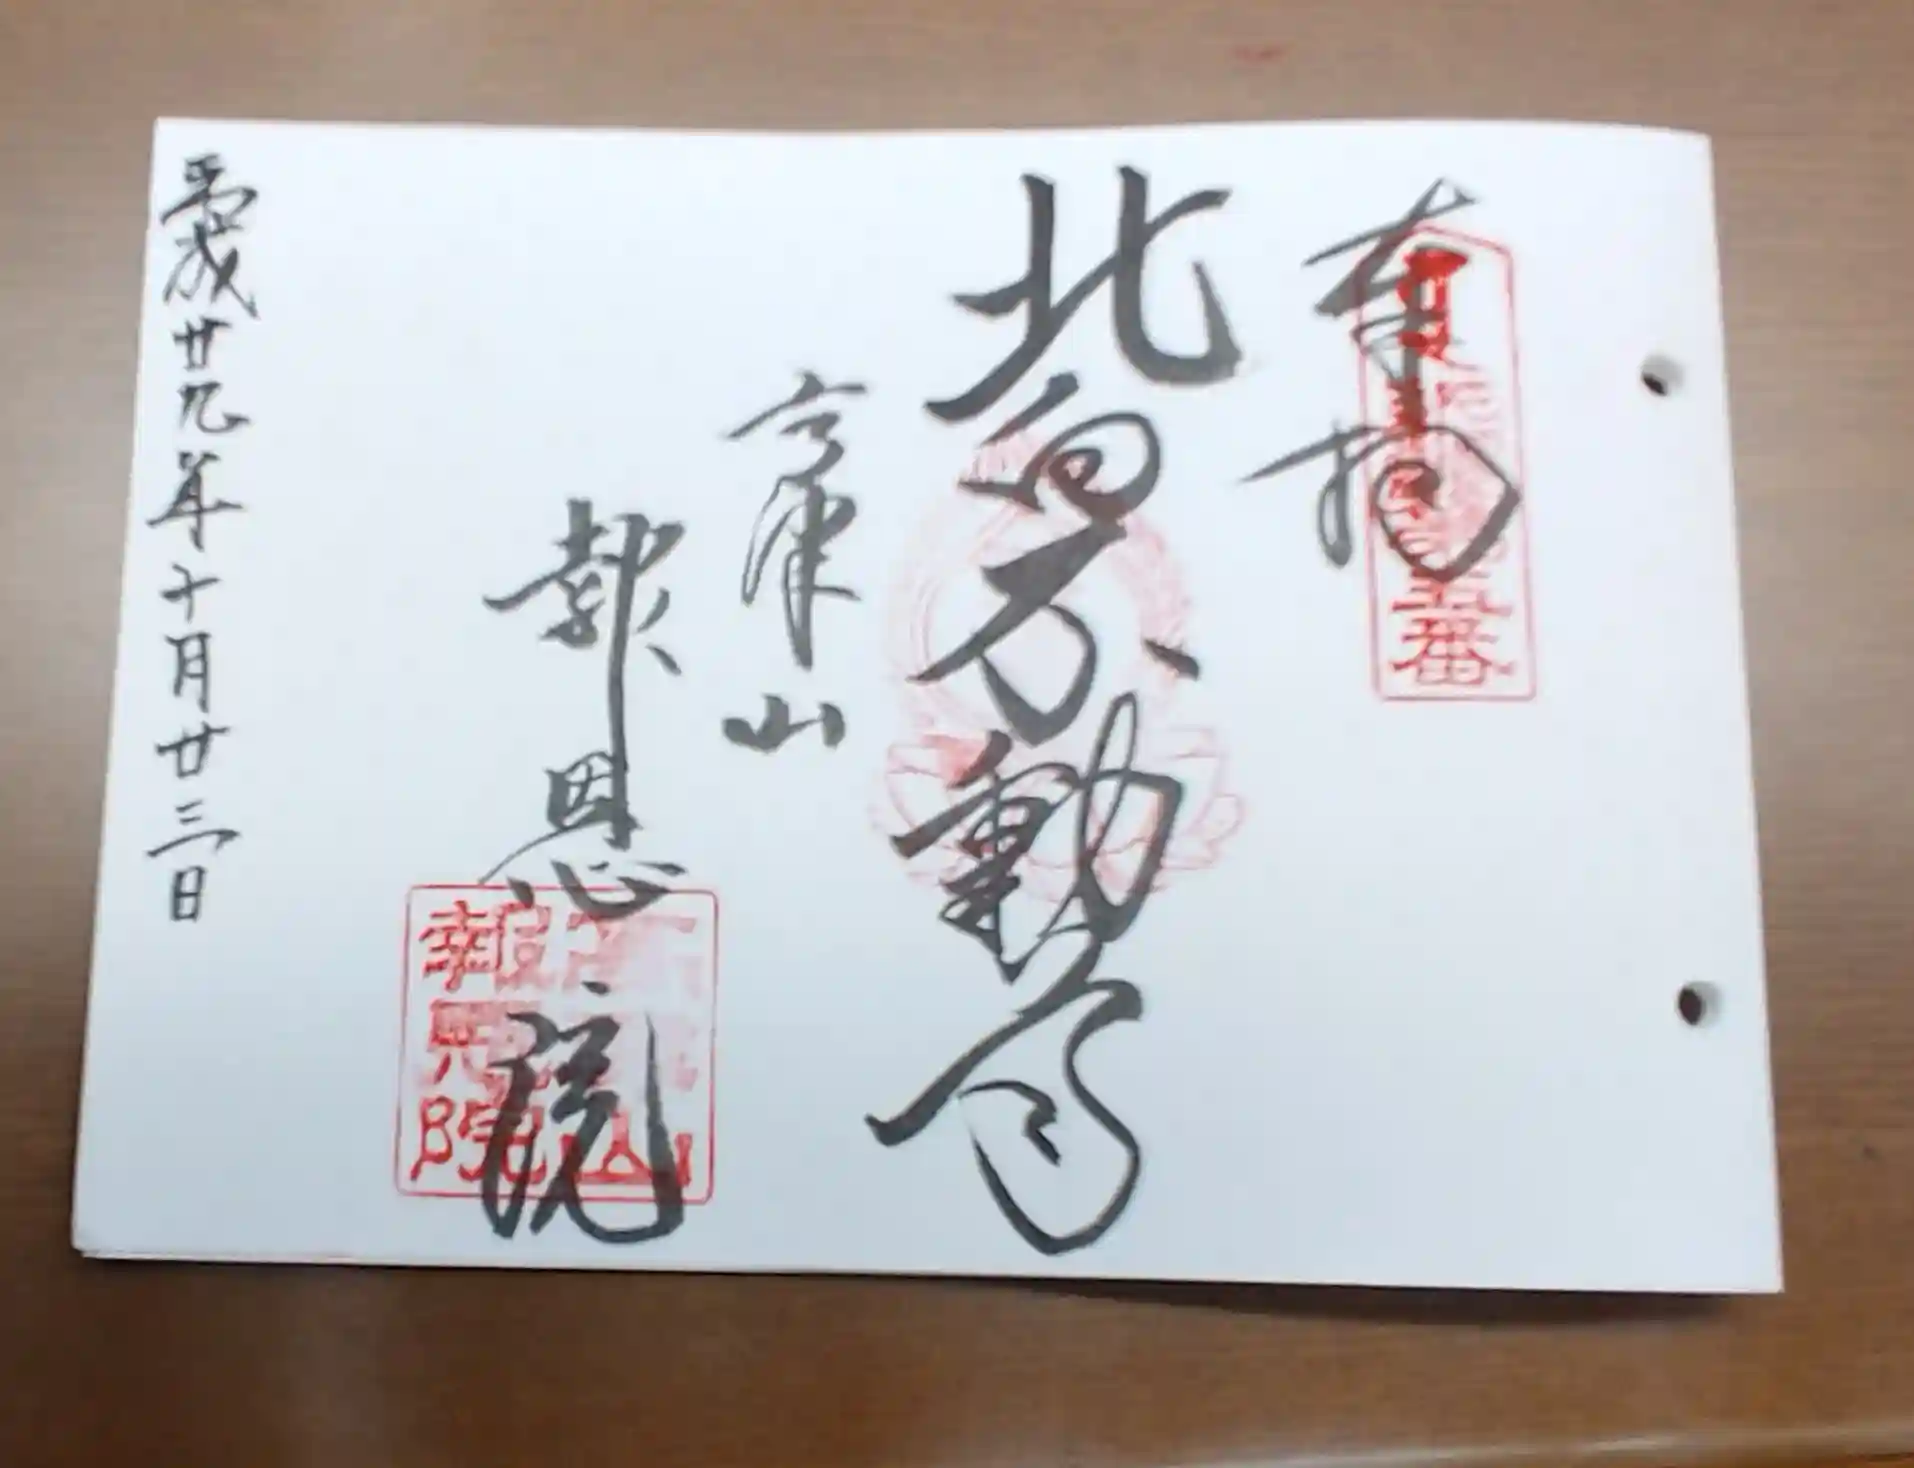 奉拝
五番
北向不動尊
高津山
報恩院
山
報恩院
平成廿九年十月廿三日